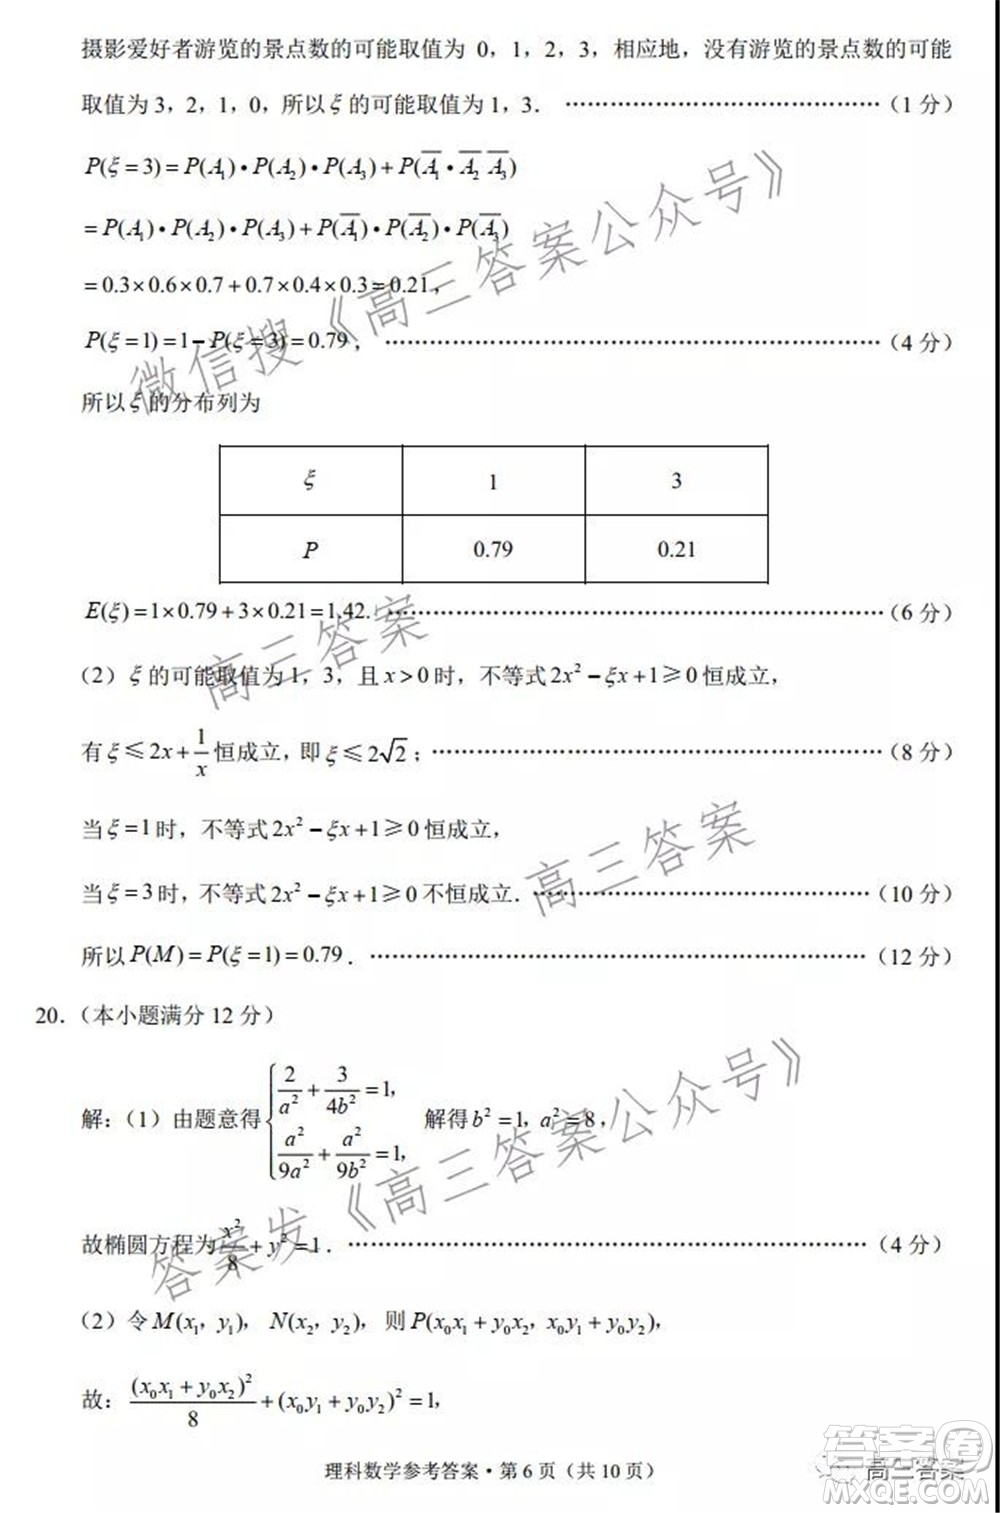 摄影爱好者游览的景点数的可能取值为 0，1，2，3，相应地，没有游览的景点数的可能
取值为 3，2，1，0，所以 ξ 的可能取值为 1，3．………………………………（1 分）
P(ξ=3)=P(A₁)•P(A₂)•P(A₃)+P(A̅₁•A̅₂ A̅₃)
=P(A₁)•P(A₂)•P(A₃)+P(A̅₁)•P(A̅₂)•P(A̅₃)
=0.3×0.6×0.7+0.7×0.4×0.3=0.21，
P(ξ=1)=1−P(ξ=3)=0.79，………………………………（4 分）
所以 ξ 的分布列为
ξ 1 3
P 0.79 0.21
E(ξ)=1×0.79+3×0.21=1.42. ………………………………（6 分）
（2）ξ 的可能取值为 1，3，且 x>0 时，不等式 2x²−ξx+1≥0 恒成立，
有 ξ≤2x+1/x 恒成立，即 ξ≤2√2；………………………………（8 分）
当 ξ=1 时，不等式 2x²−ξx+1≥0 恒成立，
当 ξ=3 时，不等式 2x²−ξx+1≥0 不恒成立．………………………………（10 分）
所以 P(M)=P(ξ=1)=0.79．………………………………（12 分）
20．（本小题满分 12 分）
解：（1）由题意得 { 2/a²+3/4b²=1， a²/9a²+a²/9b²=1， 解得 b²=1，a²=8，
故椭圆方程为 x²/8+y²=1．………………………………（4 分）
（2）令 M(x₁，y₁)，N(x₂，y₂)，则 P(x₀x₁+y₀x₂，x₀y₁+y₀y₂)，
故：(x₀x₁+y₀x₂)²/8+(x₀y₁+y₀y₂)²=1，
理科数学参考答案·第 6 页（共 10 页）
微信搜《高三答案公众号》
高三答案
高三答案
答案发《高三答案公众号》
高三答案
答案卷
MXQE.COM